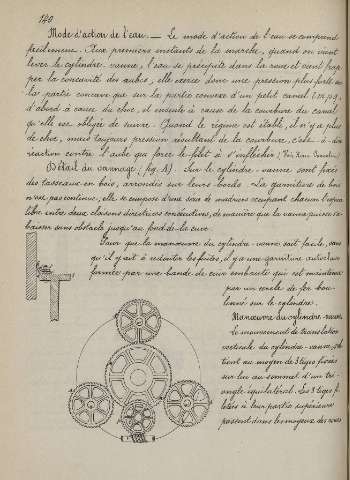 120
Mode d'action de l'eau. — Le mode d'action de l'eau se comprend
facilement. Aux premiers instants de la marche, quand on vient
lever le cylindre-vanne, l'eau se précipite dans la roue et vient frap-
per la concavité des aubes, elle exerce donc une pression plus forte sur
la partie concave que sur la partie convexe d'un petit canal
d'abord à cause du choc, et ensuite à cause de la courbure du canal
qu'elle est obligée de suivre. Quand le régime est établi, il n'y a plus
de choc, mais toujours pression résultant de la courbure, c'est-à-dire
réaction contre l'aube qui force le filet à s'infléchir
Détail du vannage (fig. ). Sur le cylindre-vanne sont fixés
des tasseaux en bois, arrondis sur leurs bords. La garniture de bois
n'est pas continue, elle se compose d'une série de madriers occupant chacun l'espace
libre entre deux cloisons directrices consécutives, de manière que la vanne puisse s'a-
baisser sans obstacle jusqu'au fond de la cuve.
Pour que la manœuvre du cylindre-vanne soit facile, sans
qu'il y ait à redouter les fuites, il y a une garniture autoclave
formée par une bande de cuir embouti qui est maintenue
par un cercle de fer bou-
lonné sur le cylindre.
Manœuvre du cylindre-vanne
le mouvement de translation
verticale du cylindre-vanne, s'ob-
tient au moyen de 3 tiges fixées
sur lui au sommet d'un tri-
angle équilatéral. Les 3 tiges fi-
letées à leur partie supérieure
passent dans les moyeux des roues